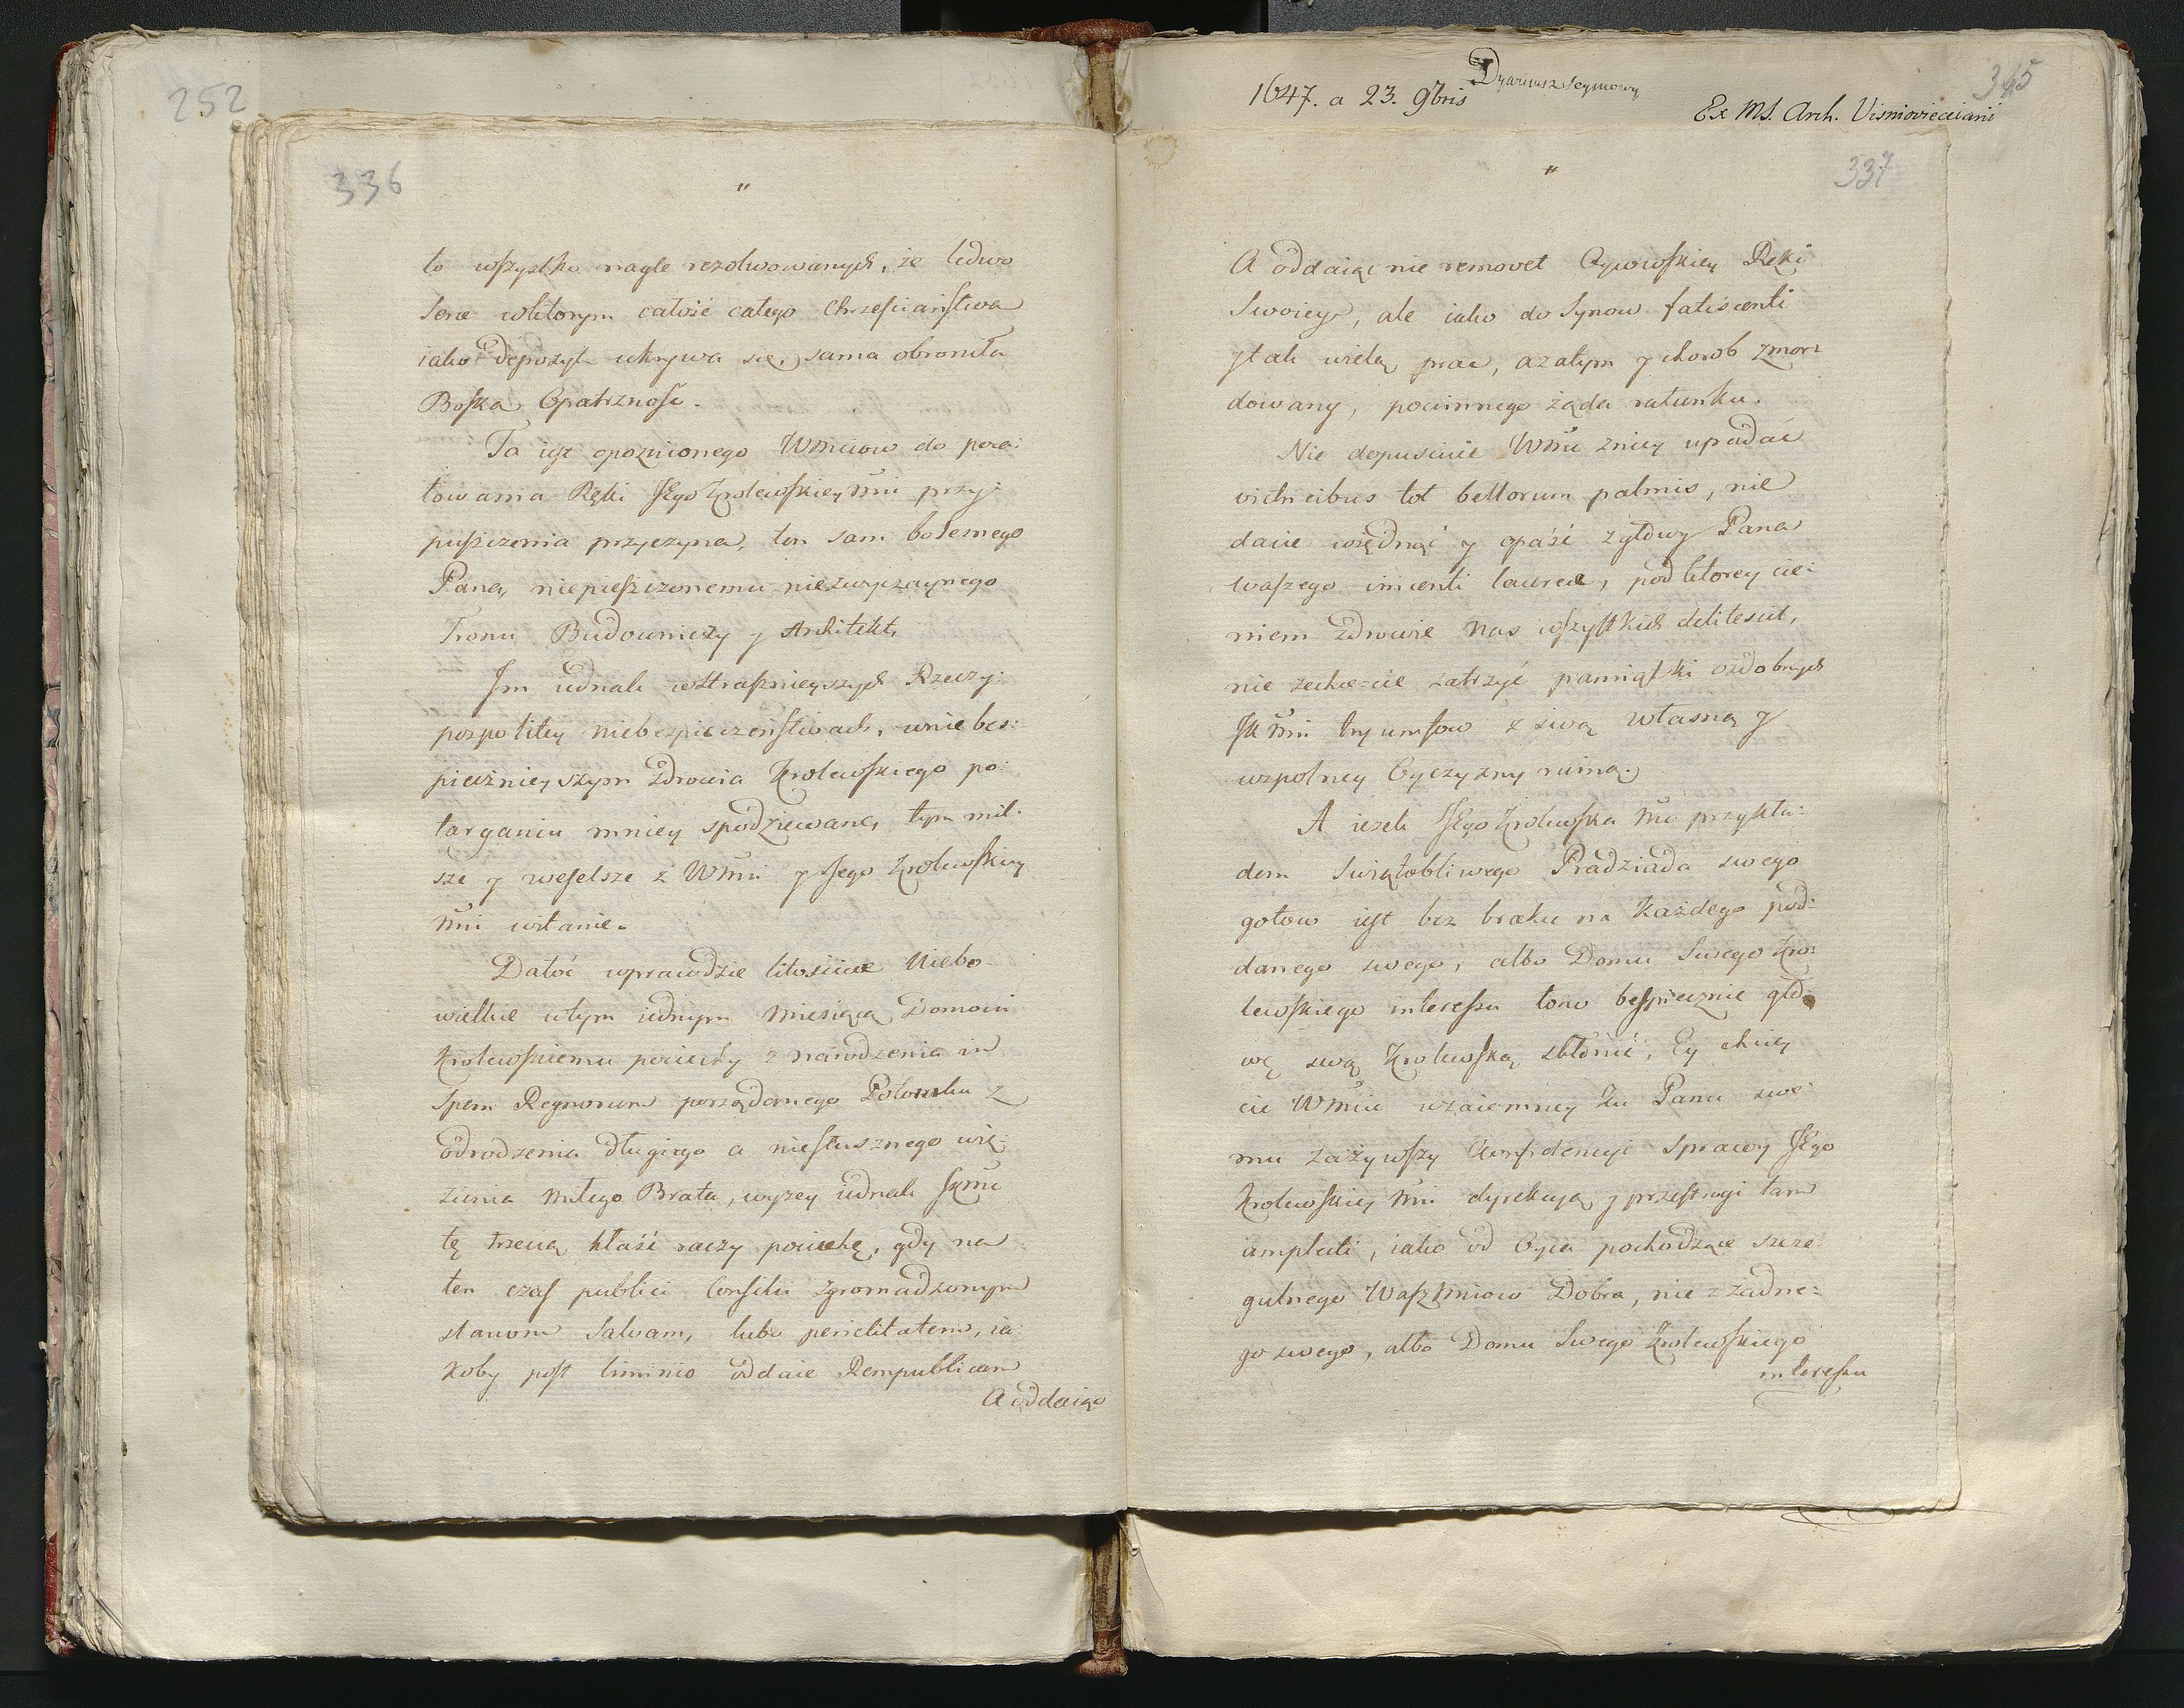 252
336
"
to wszystko nagle rezolwowanych, że ledwo
Serce w ktorym całość całego Chrześciaństwa
iako Depozyt ukrywa się, sama obroniła
Boska Opatrzność.
Ta iest opoznionego WMciow do poca:
łowania Ręki JEgo Krolewskiey Mći przy:
puszczenia przyczyna, ten sam bolesnego
Pana, niepieszczonemu niezwyczaynego
Tronu Budowniczy y Architekt,
Im iednak w straszneyszych Rzeczy:
pospolitey niebezpieczeństwach, w niebes:
piecznieyszym Zdrowia Krolewskiego po:
targaniu mniey spodziewane, tym mil:
sze y weselsze z WMći y Jego Krolewskiey
Mći witanie.
Dałoć wprawdzie litościwe Niebo
wielkie w tym iednym Miesiącu Domowi
Krolewskiemu pociechy z narodzenia in
Spem Regnorum pożądanego Potomka z
odrodzenia długiego a niesłusznego wię:
zienia Miłego Brata, wyżey iednak JKMć
tę trzecią kłaść raczy pociechę, gdy na
ten czas publici Consilii zgromadzonym
stanom Salvam, lubo periclitatem, ia:
koby post liminio oddaie Rempublicam
A oddaiąc
1647. a 23. 9bris
Dyariusz Seymowy
Ex MS. Arch. Visniovieciani
345
"
337
A oddaiąc nie removet Oycowskiey Ręki
Swoiey, ale iako do Synow fatiscenti
y tak wielą prac, a zatym y chorob zmor:
dowany, powinnego żąda ratunku.
Nie dopuścicie WMć z niey upadać
victricibus tot bellorum palmis, nie
dacie więdnąć y opaść z głowy Pana
Waszego innienti laureæ, pod ktorey cie:
niem Zdrowie nas wszystkich delitescit,
nie zechcecie zatrzyć pamiątki ozdobnych
JKMći tryumfow z swą własną y
wspolney Oyczyzny ruiną.
A ieżeli JEgo Krolewska Mć przykła:
dem Swiątobliwego Pradziada swego
gotow iest bez braku na każdego pod:
danego swego, albo Domu Swego Kro:
lewskiego interessu łono bespiecznie gło:
wę swą Krolewską skłonić, Ey chciey
cie WMcie wzaiemney ku Panu swe:
mu zażywszy konfidencyi Sprawy JEgo
Krolewskiey Mći dyrekcyą y przestrogi tam
amplecti, iako od Oyca pochodzące szcze
gulnego WaszMciow Dobra, nie z żadne:
go swego, albo Domu Swego Krolewskiego
interessu